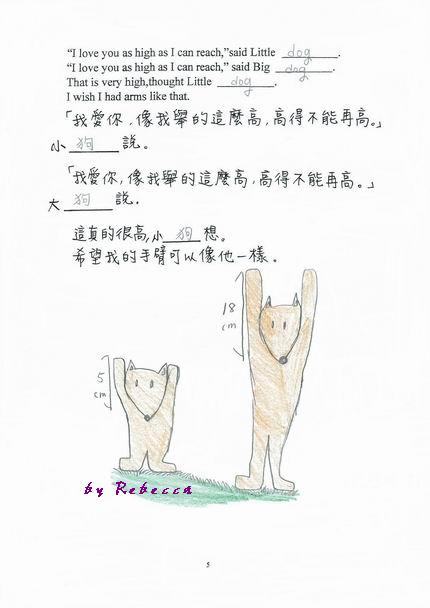 “I love you as high as I can reach,”said Little dog.
“I love you as high as I can reach,” said Big dog.
That is very high,thought Little dog.
I wish I had arms like that.
「我愛你,像我舉的這麼高,高得不能再高。」
小狗說。
「我愛你,像我舉的這麼高,高得不能再高。」
大狗說.
這真的很高,小狗想。
希望我的手臂可以像他一樣。
18
cm
5
cm
by Rebecca
5